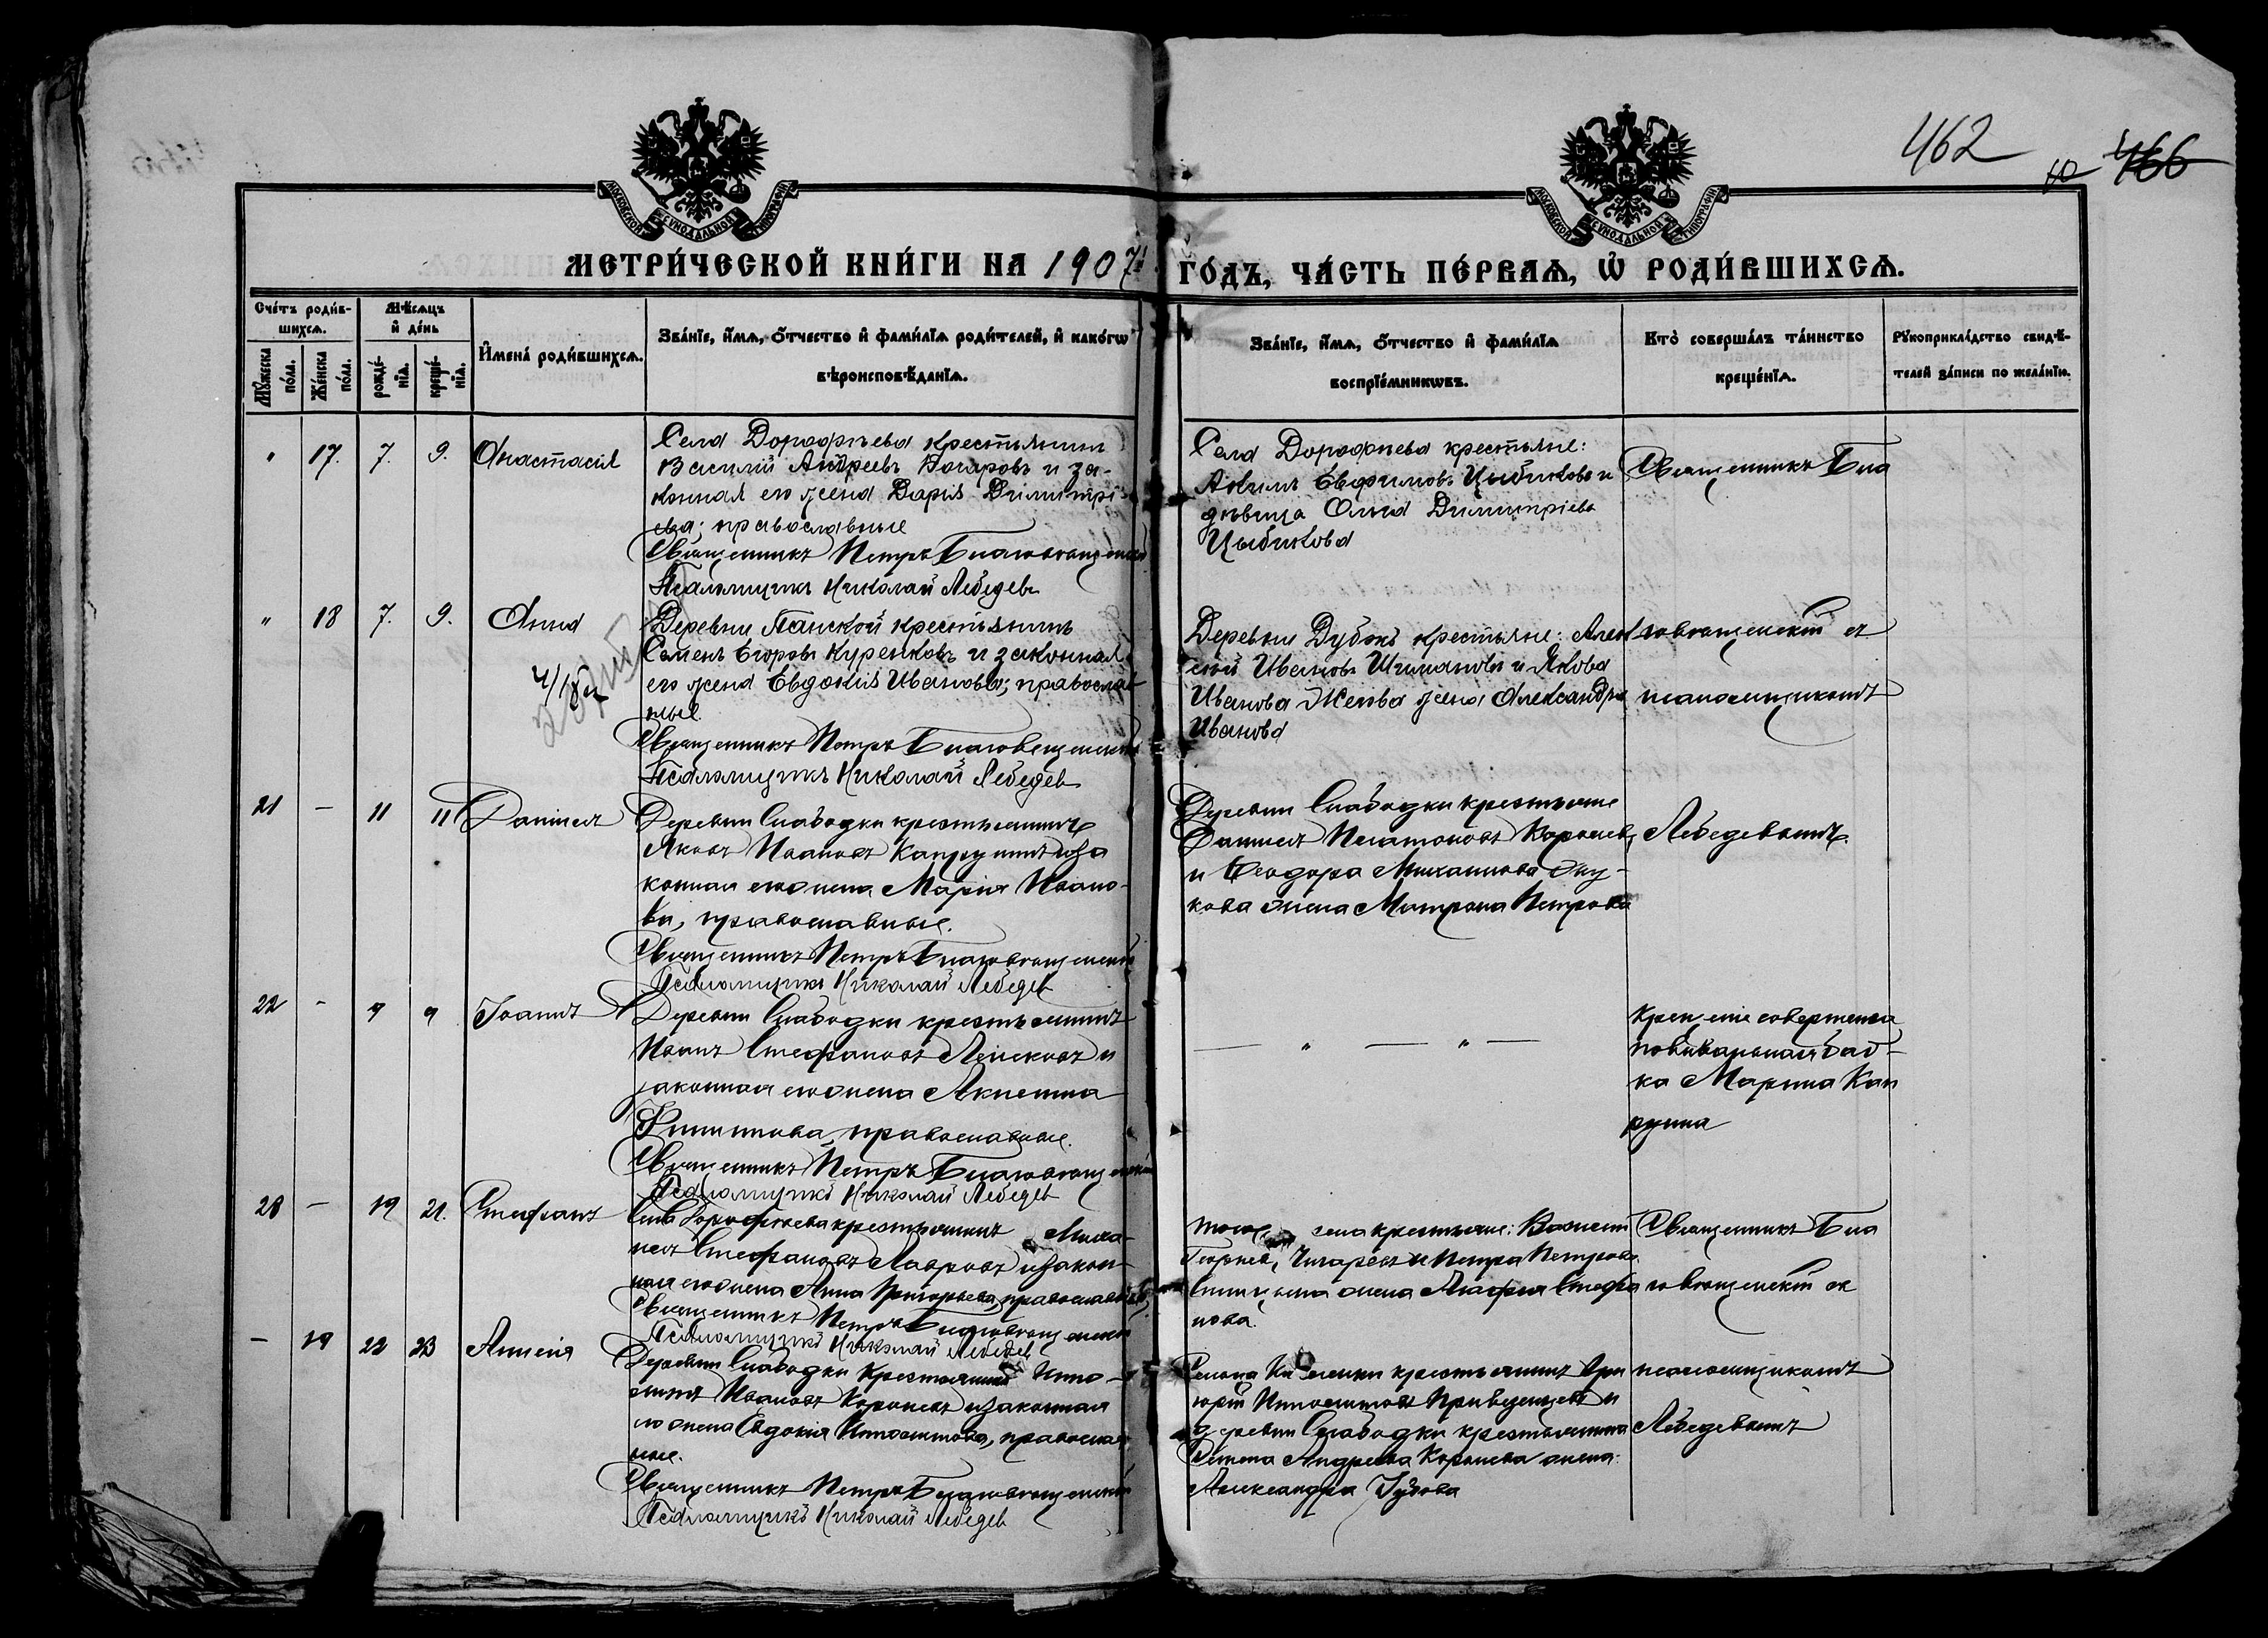 462
10 466
МОСКОВСКОЙ СѴНОДАЛЬНОЙ ТИПОГРАФІИ
МОСКОВСКОЙ СѴНОДАЛЬНОЙ ТИПОГРАФІИ
МЕТРИ́ЧЕСКОЙ КНИ́ГИ НА 1907 ГО́ДЪ, ЧА́СТЬ ПЕ́РВАѦ, Ѡ҆ РОДИ́ВШИХСѦ.
Сче́тъ роди́в-
шихсѧ.
Мꙋжеска по́ла.
Же́нска по́ла.
Мѣ́сѧцъ
и҆ де́нь
рожде́-
нїѧ.
креще́-
нїѧ.
И҆мена̀ роди́вшихсѧ.
Зва́нїе, и҆́мѧ, ѻ҆́тчество и҆ фами́лїѧ роди́телей, и҆ како́гѡ
вѣроисповѣ́данїѧ.
Зва́нїе, и҆́мѧ, ѻ҆́тчество и҆ фами́лїѧ
воспрїе́мникѡвъ.
Кто̀ соверша́лъ та́инство
креще́нїѧ.
Рꙋкоприкла́дство свидѣ́-
телей за́писи по жела́нїю.
" 17. 7. 9. Анастасія
Села Дорофѣева крестьянинъ
Василій Андреевъ и за-
конная его жена Дарія Димитрі
ева; православные
Священникъ Петръ Благовѣщенскій
Псаломщикъ Николай Лебедевъ
Села Дорофѣева крестьяне:
Акимъ Евфимовъ Цыбиковъ и
дѣвица Ольга Димитріева
Цыбикова
Священникъ Бла
" 18 7. 9. Анна
Деревни Панской крестьянинъ
Семенъ Егоровъ Куренковъ и законная
его жена Евдокія Иванова; православ
ные.
Священникъ Петръ Благовѣщенскій
Псаломщикъ Николай Лебедевъ
Деревни Дубокъ крестьяне: Алек
сѣй Ивановъ Шимановъ и Якова
Иванова жена Александра
Иванова
говѣщенскій съ
псаломщикомъ
21 — 11 11 Даніилъ
Деревни Слабодки крестьянинъ
Яковъ Ивановъ Капрунинъ и за
конная его жена Марія Ивано-
ва, православные.
Священникъ Петръ Благовѣщенскій
Псаломщикъ Николай Лебедевъ
Деревни Слабодки крестьяне
Даніилъ Платоновъ Королевъ,
и Ѳеодора Михаилова
кова жена Матрона Петрова
Лебедевымъ.
22 - 9 9 Іоаннъ
Деревни Слабодки крестьянинъ
Иванъ Стефановъ и
законная его жена Акилина
Филиппова, православные.
Священникъ Петръ Благовѣщенскій
Псаломщикъ Николай Лебедевъ
— " — " —
Крещеніе совершила
повивальная баб-
ка Марина Кап
рунина
23 — 19 21. Стефанъ
Села Дорофѣева крестьянинъ Миха-
илъ Стефановъ Лавровъ и закон-
ная его жена Анна Григорьева, православные,
Священникъ Петръ Благовѣщенскій
Псаломщикъ Николай Лебедевъ
того же села крестьяне: Василій
Георгіевъ и Петра Петрова
жена Агафія Стефа
нова.
Священникъ Бла
говѣщенскій съ
— 19 22 23 Анисія
Деревни Слабодки крестьянинъ Иппо-
литъ Ивановъ Королевъ и законная
его жена Евдокія Ипполитова, православ
ные.
Священникъ Петръ Благовѣщенскій
Псаломщикъ Николай Лебедевъ
крестьянинъ Гри
горій Ипполитовъ и
деревни Слабодки крестьянина
Семена Андреева Королева жена
Александра Зубова
псаломщикомъ
Лебедевымъ